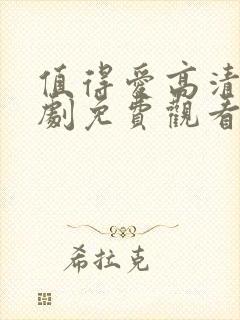 值得爱高清
劇免費觀看
希拉克